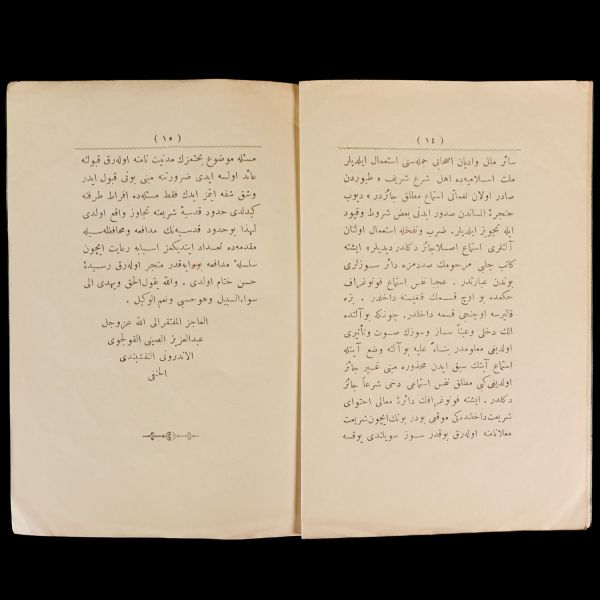 ( ١٤ )
سائر ملل واديان اصحابى جمله‌سنى استعمال ايلديلر
ملت اسلاميه‌ده اهل شرع شريف ° طيوردن
صادر اولان نغماتى استماع مطلق جائزدر ° ديوب
حنجرهٔ انساندن صدور ايدنى بعض شروط وقيود
ايله تجويز ايلديلر. ضرب ونفخله استعمال اولنان
آلتلرى استماع اصلاجائز دكلدر ديديلر، ايشته
كاتب چلبى مرحومك صددمزه دائر سوزلرى
بوندن عبارتدر. عجبا نفس استماع فونوغراف
حكمده بو اوچ قسمك قنغيسنه داخلدر. بزه
قاليرسه اوچنجى قسمه داخلدر. چونكه بو آلتده
الك دخلى وعيناً ساز وسوزك صوت وتأثيرى
اولديغى معلومدر بناءً عليه بو آلته وضع آيتله
استماع آيتك سبق ايدن محذوره مبنى غير جائز
اولديغى كبى مطلق نفس استماعى دخى شرعاً جائز
دكلدر. ايشته فونوغرافك دائرهٔ معالى احتواى
شريعت داخلنده‌كى موقعى بودر بونك ايچون شريعت
معلانامنه اوله‌رق بوقدر سوز سويلندى يوقسه
( ١٥ )
مسئله موضوع بحثمزك مدنيت نامنه اوله‌رق قبولنه
عائد اولسه ايدى ضرورتنه مبنى بونى قبول ايدر
وشق شفه ايتمز ايدك فقط مسئله‌ده افراط طرفنه
كيدلدى حدود قدسيهٔ شريعته تجاوز واقع اولدى
لهذا بوحدود قدسيه‌نك مدافعه ومحافظه‌سيله
مقدمه‌ده تعداد ايتديكمز اسبابه رعايت ايچون
سلسلهٔ مدافعه بورايه‌قدر منجر اوله‌رق رسيدهٔ
حسن ختام اولدى. والله يقول الحق ويهدى الى
سواء السبيل وهو حسبى ونعم الوكيل.
العاجز المفتقر الى الله عزوجل
عبدالعزيز الصينى القولجوى
الاندرونى النقشبندى
الحنفى